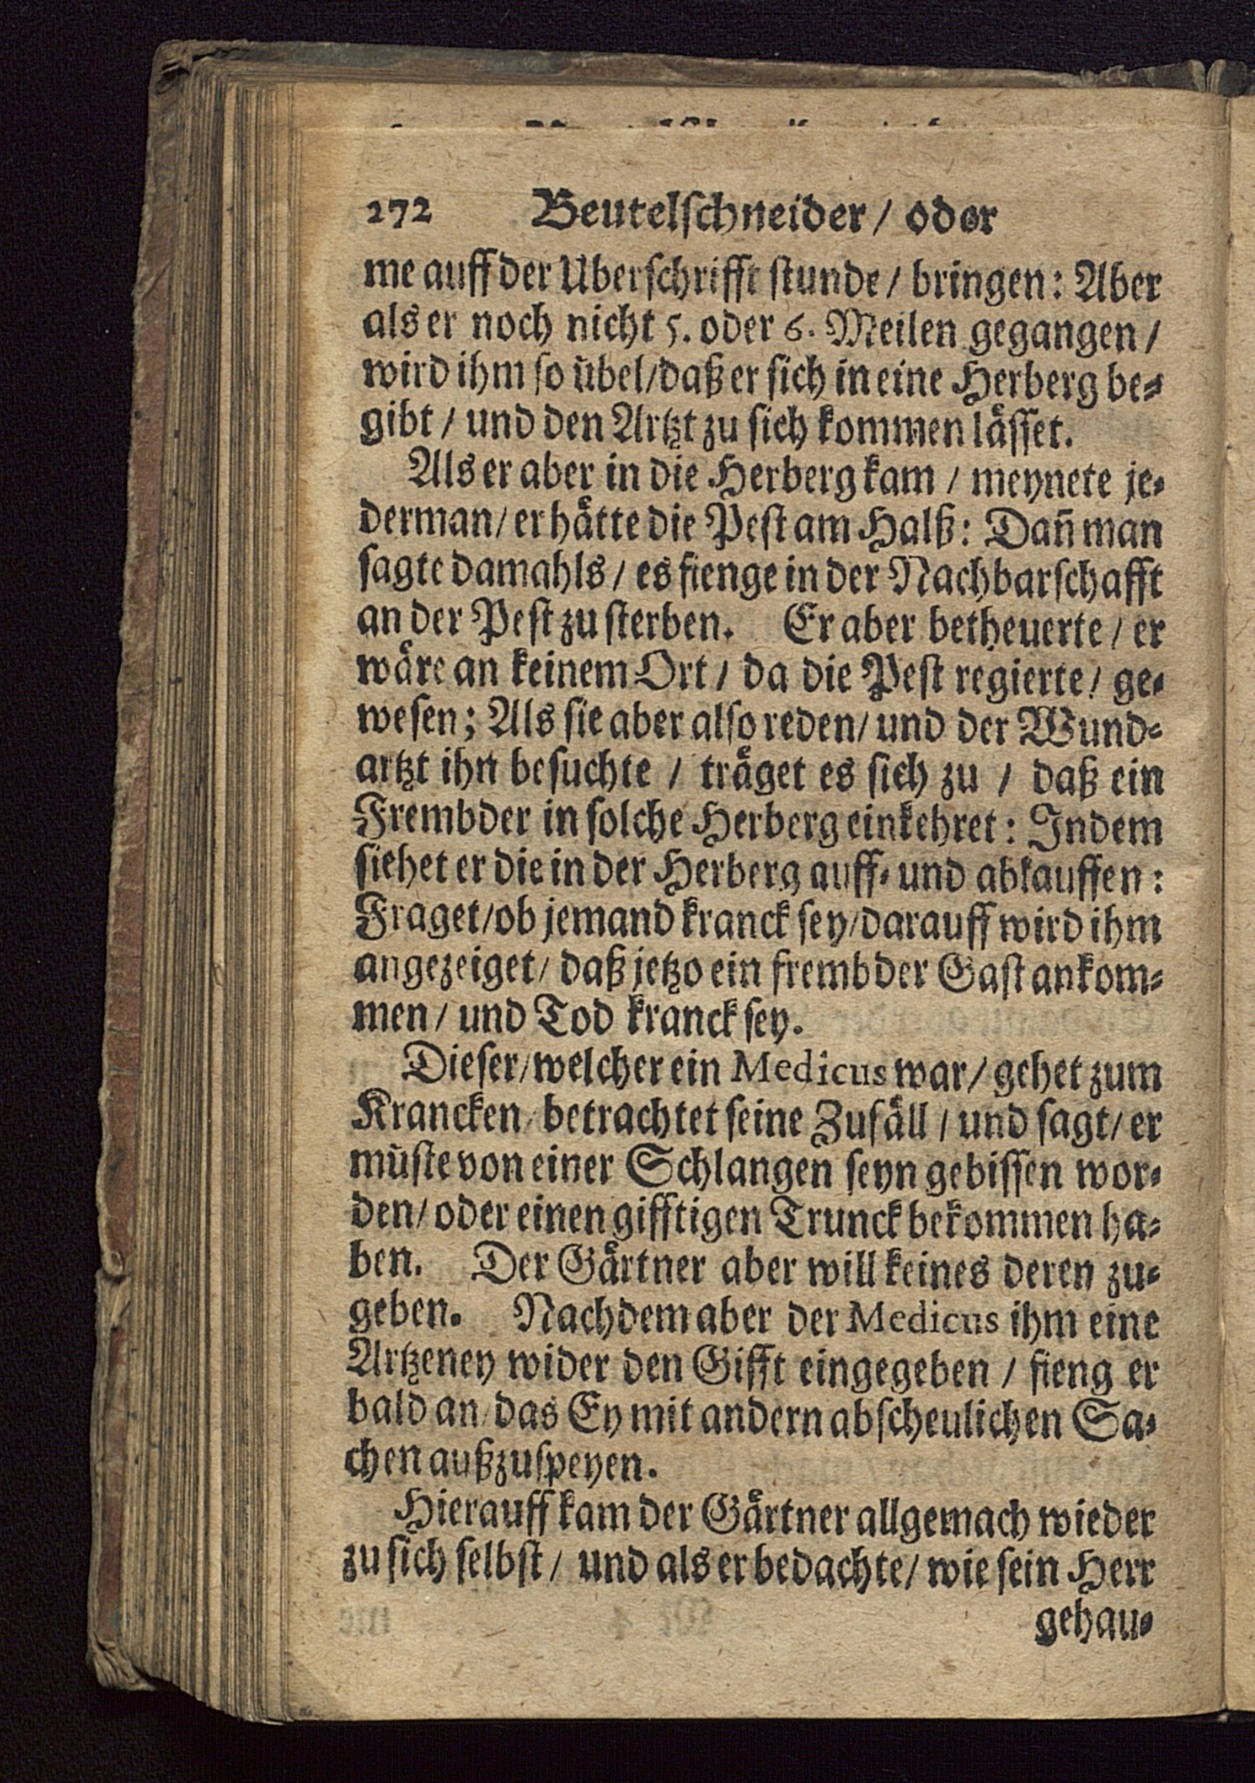 272 Beutelschneider / oder
me auff der Uberschrifft stunde / bringen: Aber
als er noch nicht 5. oder 6. Meilen gegangen /
wird ihm so uͤbel/daß er sich in eine Herberg be⸗
gibt / und den Artzt zu sich kommen laͤsset.
Als er aber in die Herberg kam / meynete je⸗
derman/ er haͤtte die Pest am Halß: Dañ man
sagte damahls / es fienge in der Nachbarschafft
an der Pest zu sterben. Er aber betheuerte / er
waͤre an keinem Ort / da die Pest regierte / ge⸗
wesen; Als sie aber also reden/ und der Wund⸗
artzt ihn besuchte / traͤget es sich zu / daß ein
Frembder in solche Herberg einkehret: Indem
siehet er die in der Herberg auff⸗ und abkauffen:
Fraget/ob jemand kranck sey/darauff wird ihm
angezeiget/ daß jetzo ein frembder Gast ankom⸗
men / und Tod kranck sey.
Dieser/welcher ein Medicus war/ gehet zum
Krancken/ betrachtet seine Zufaͤll / und sagt/ er
muͤste von einer Schlangen seyn gebissen wor⸗
den/ oder einen gifftigen Trunck bekommen ha⸗
ben. Der Gaͤrtner aber will keines deren zu⸗
geben. Nachdem aber der Medicus ihm eine
Artzeney wider den Gifft eingegeben / fieng er
bald an/ das Ey mit andern abscheulichen Sa⸗
chen außzuspeyen.
Hierauff kam der Gaͤrtner allgemach wieder
zu sich selbst / und als er bedachte/ wie sein Herr
gehau⸗